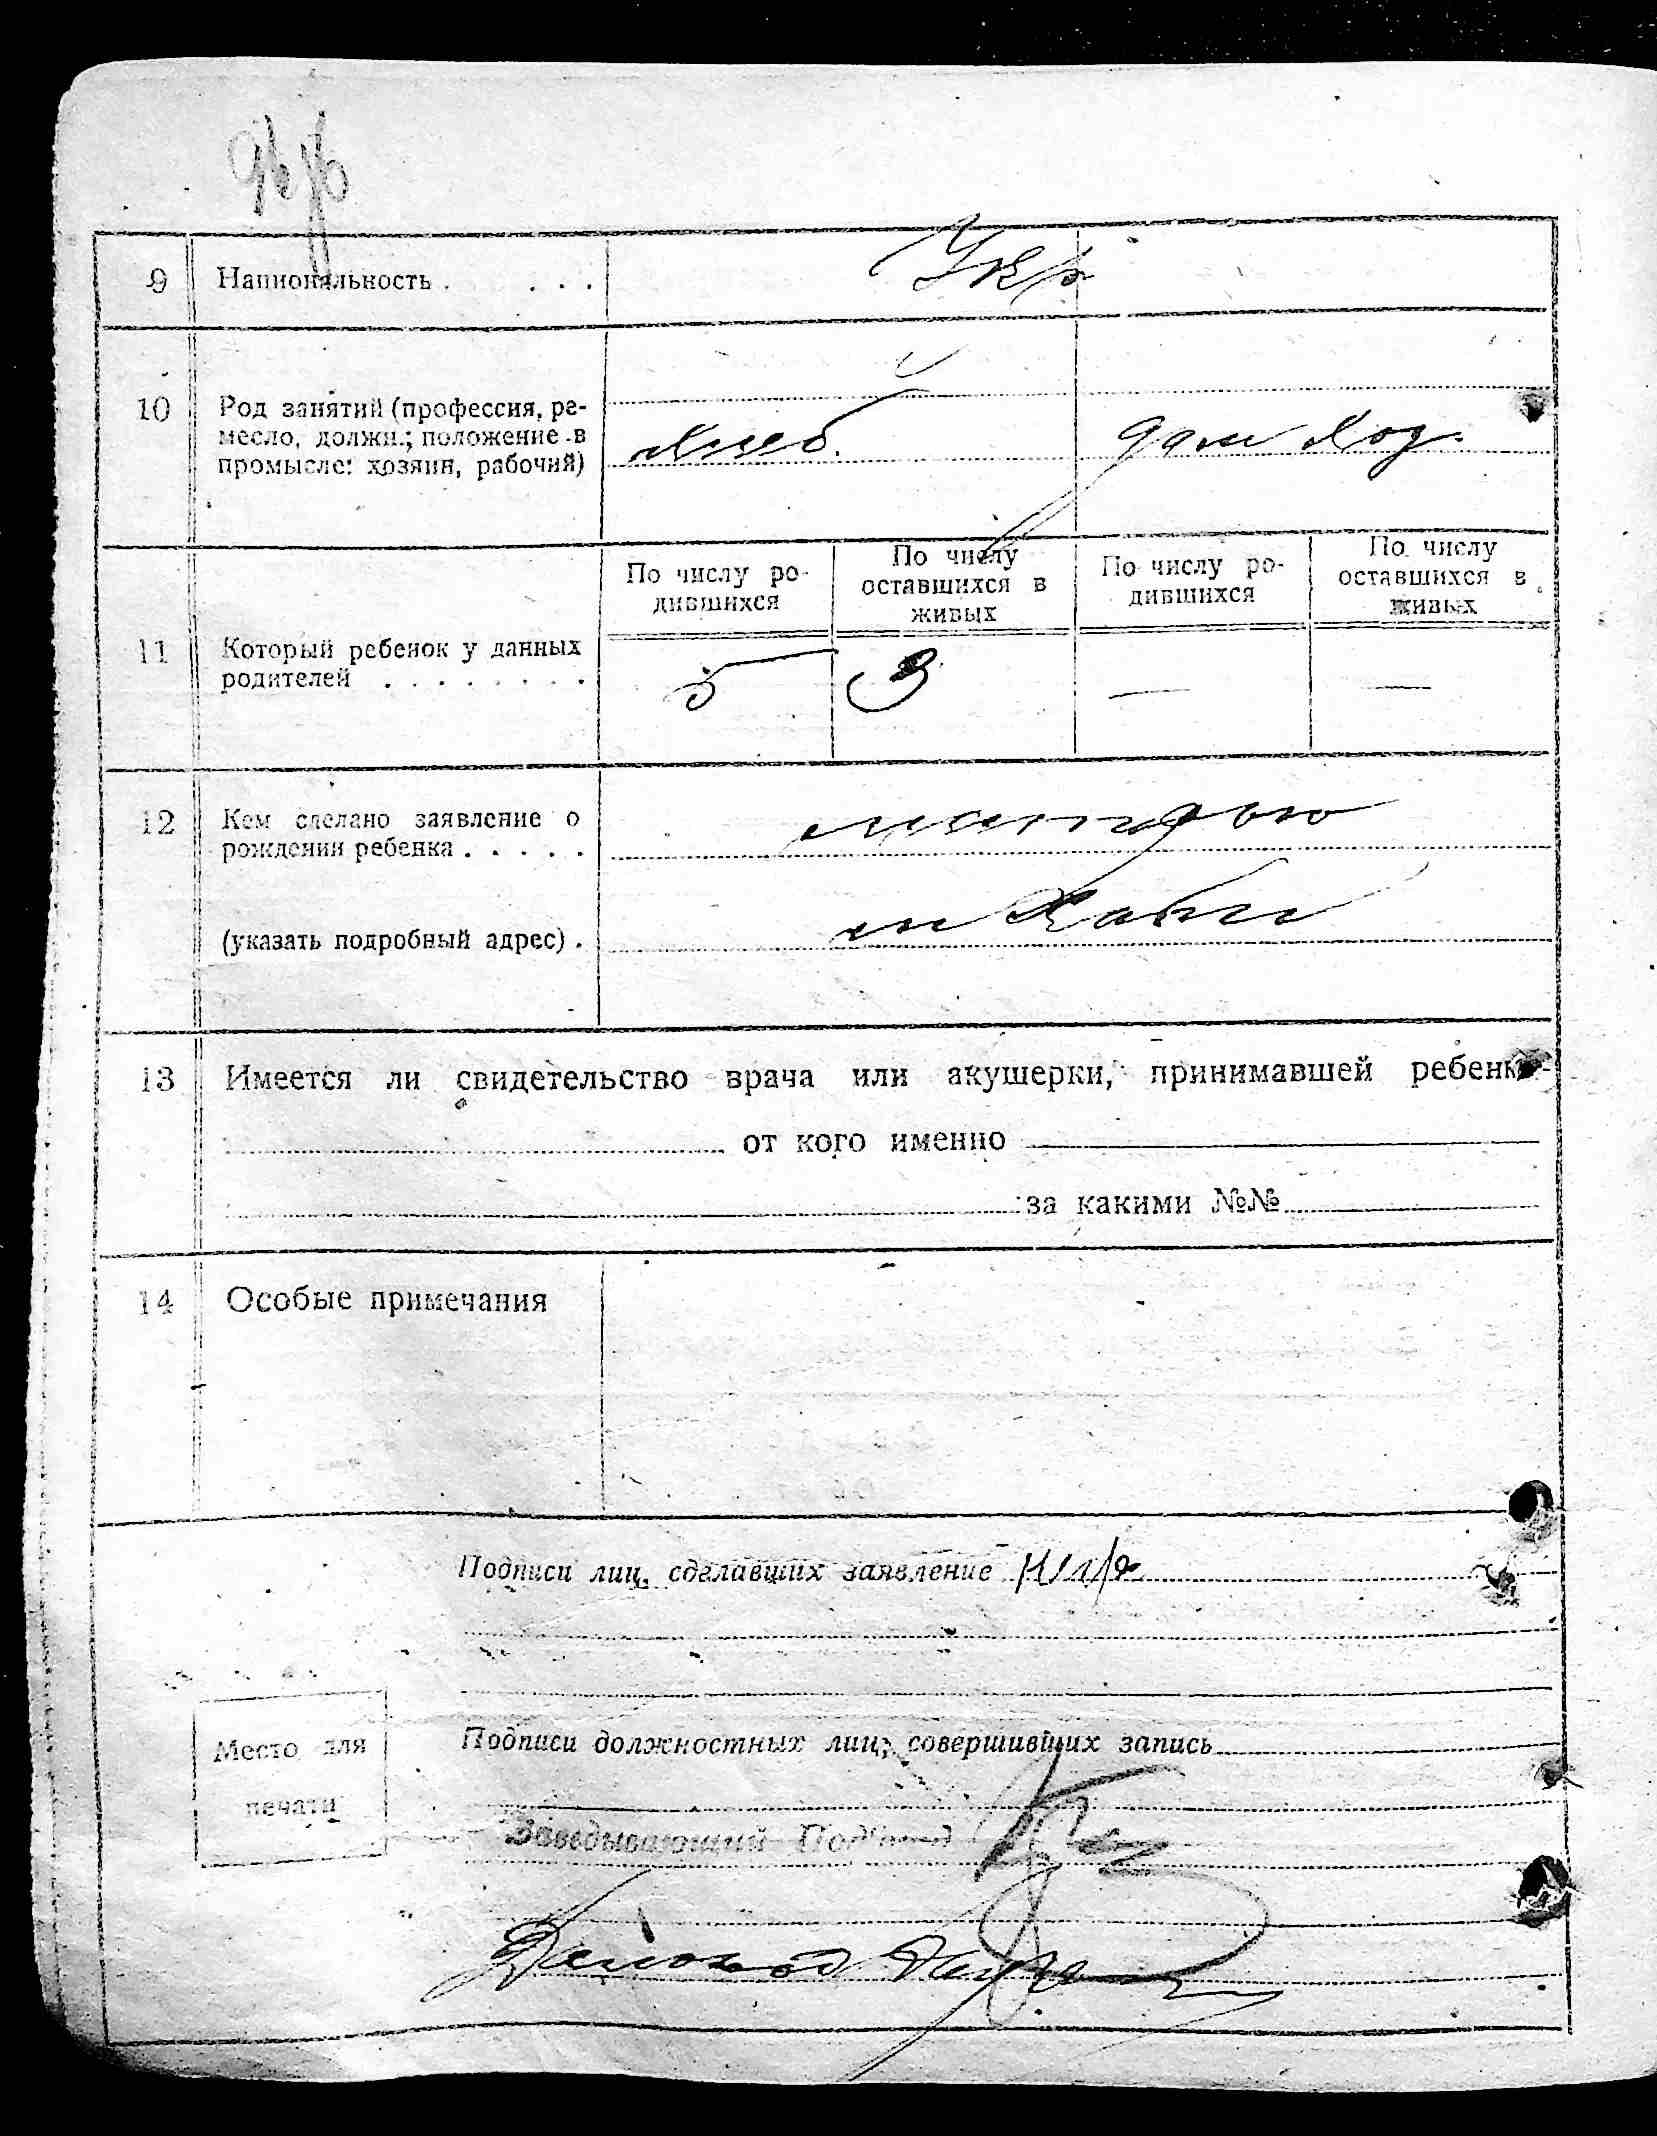 9 Национальность . . . . Укр
10 Род занятий (профессия, ре-
месло, должн.; положение в
промысле: хозяин, рабочий) Хлеб. дом хоз.
По числу ро-
дившихся
По числу
оставшихся в
живых
По числу ро-
дившихся
По числу
оставшихся в
живых
11 Который ребенок у данных
родителей . . . . . . . . 5 3 — —
12 Кем сделано заявление о
рождении ребенка . . . . . матерью
(указать подробный адрес) . м
13 Имеется ли свидетельство врача или акушерки, принимавшей ребенка
от кого именно
за какими №№
14 Особые примечания
Подписи лиц, сделавших заявление н/гр
Место для
печати
Подписи должностных лиц, совершивших запись
Заведывающий
Деловод